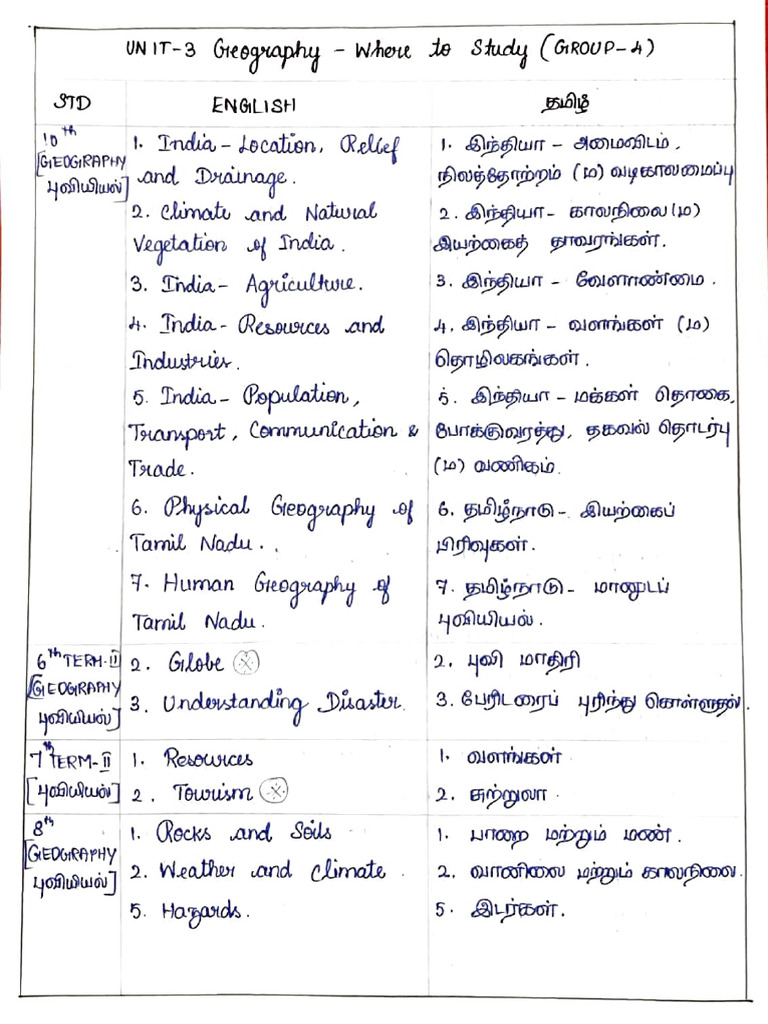 UNIT-3 Geography - Where to Study (GROUP-4)
STD ENGLISH தமிழ்
10th [GEOGRAPHY புவியியல்]
1. India - Location, Relief
and Drainage.
2. Climate and Natural
Vegetation of India.
3. India - Agriculture.
4. India - Resources and
Industries.
5. India - Population,
Transport, Communication &
Trade.
6. Physical Geography of
Tamil Nadu.
7. Human Geography of
Tamil Nadu.
1. இந்தியா - அமைவிடம்,
நிலத்தோற்றம் (ம) வடிகாலமைப்பு
2. இந்தியா - காலநிலை (ம)
இயற்கைத் தாவரங்கள்.
3. இந்தியா - வேளாண்மை.
4. இந்தியா - வளங்கள் (ம)
தொழிலகங்கள்.
5. இந்தியா - மக்கள் தொகை,
போக்குவரத்து, தகவல் தொடர்பு
(ம) வணிகம்.
6. தமிழ்நாடு - இயற்கைப்
பிரிவுகள்.
7. தமிழ்நாடு - மானுடப்
புவியியல்.
6th TERM-II
[GEOGRAPHY
புவியியல்]
2. Globe
3. Understanding Disaster.
2. புவி மாதிரி
3. பேரிடரைப் புரிந்து கொள்ளுதல்.
7th TERM-II
[புவியியல்]
1. Resources
2. Tourism
1. வளங்கள்
2. சுற்றுலா
8th
[GEOGRAPHY
புவியியல்]
1. Rocks and Soils
2. Weather and Climate.
5. Hazards.
1. பாறை மற்றும் மண்.
2. வானிலை மற்றும் காலநிலை.
5. இடர்கள்.